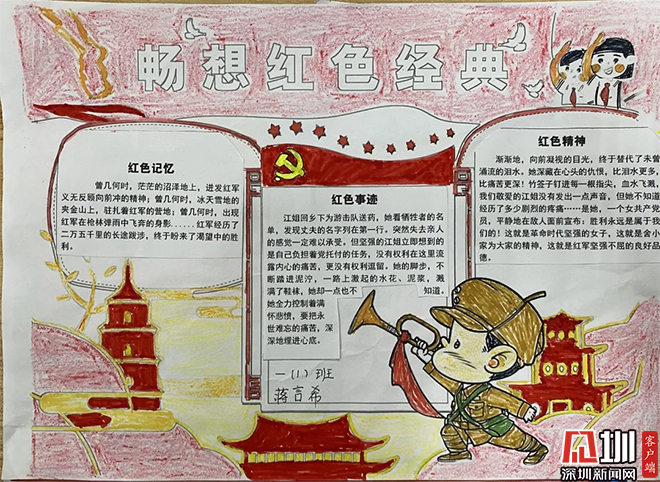 畅想红色经典
红色记忆
曾几何时，茫茫的沼泽地上，迸发红军
义无反顾向前冲的精神；曾几何时，冰天雪地的
夹金山上，驻扎着红军的营地；曾几何时，出现
红军在枪林弹雨中飞奔的身影......红军经历了
二万五千里的长途跋涉，终于盼来了渴望中的胜
利。
红色事迹
江姐回乡下为游击队送药，她看牺牲者的名
单，发现丈夫的名字列在第一行。突然失去亲人
的感觉一定难以承受。但坚强的江姐立即想到的
是自己负担着党托付的任务，没有权利在这里流
露内心的痛苦，更没有权利逗留。她的脚步，不
断踏进泥泞，一路上激起的水花、泥浆，溅
满了鞋袜，她却一点也不知道。
她全力控制着满
怀悲愤，要把永
世难忘的痛苦，深
深地埋进心底。
一(1)班
蒋言希
红色精神
渐渐地，向前凝视的目光，终于替代了未曾
涌流的泪水。她深藏在心头的仇恨，比泪水更多，
比痛苦更深！竹签子钉进每一根指尖，血水飞溅，
我们敬爱的江姐没有发出一点声音，但她不知道
经历了多少剧烈的疼痛……是她，一个女共产党
员，平静地在敌人面前宣布：胜利永远是属于我
们的！这就是革命时代坚强的女子，这就是舍小
家为大家的精神，这就是红军坚强不屈的良好品
德。
深圳
客户端
深圳新闻网